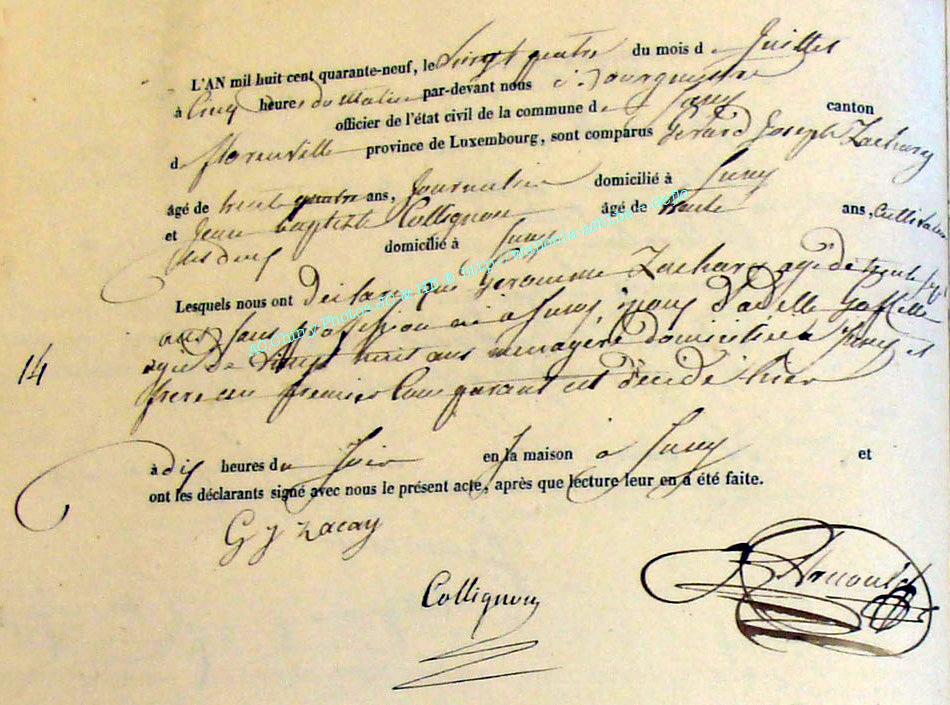 L'AN mil huit cent quarante-neuf, le vingt quatre du mois d Juillet
à Cinq heures du Matin par-devant nous
officier de l'état civil de la commune d Suxy canton
d florenville province de Luxembourg, sont comparus Gérard Joseph Zachary
âgé de trente quatre ans, Journalier domicilié à Suxy
et Jean baptiste Collignon âgé de trente ans, Cultivateur
domicilié à Suxy
Lesquels nous ont Déclaré que Zachary agé de trente
ans sans profession né à Suxy, époux d'adelle
agée de vingt huit ans menagère domiciliée à Suxy et
14
frere au premier Comparant est décédé hier
à dix heures du Soir en sa maison à Suxy et
ont les déclarants signé avec nous le présent acte, après que lecture leur en a été faite.
G J Zacary
Collignon
Arnould